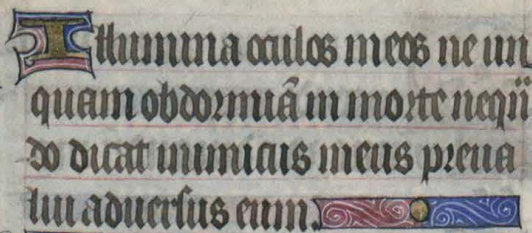 Illumina oculos meos ne un
quam obdormiã in morte neqñ
do dicat inimicus meus preua
lui aduersus eum.